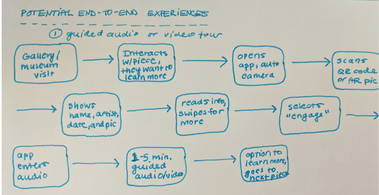 POTENTIAL END-TO-END EXPERIENCES
① guided audio or video tour
Gallery/
museum
visit
Interacts
w/piece,
they want to
learn more
opens
app, auto
camera
scans
QR code
or AR pic
shows
name, artist,
date, and pic
reads info,
swipes for
more
selects
"engage"
app
enters
audio
1-5 min.
guided
audio/video
option to
learn more,
goes to
next piece